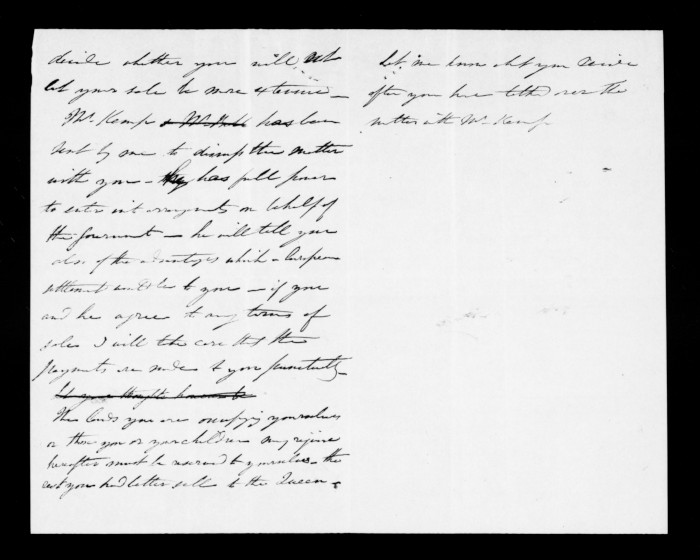 decide whether you will not
let your sale be more extensive –
Mr. Kemp & Mr. has been
sent by me to discuss the matter
with you – he has full power
to enter into arrangements on behalf of
the Government – he will tell you
also of the advantages which a European
settlement would be to you – if you
and he agree to any terms of
sale I will take care that the
payments are made to you punctually –
Let your thoughts
The lands you are occupying yourselves
or those you or your children may require
hereafter must be reserved to yourselves – the
rest you had better sell to the Queen –
Let me know what you decide
after you have talked over the
matter with Mr. Kemp